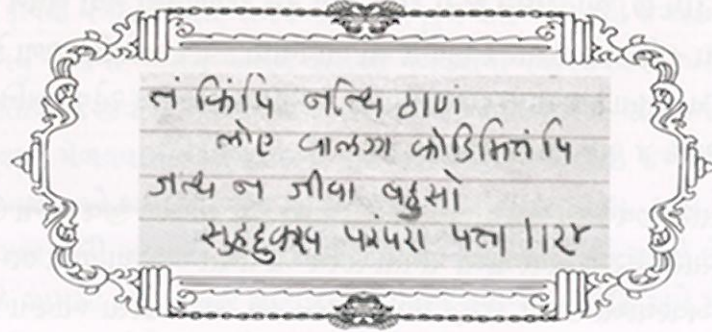 तं किंपि नत्थि ठाणं
लोए वालग्ग कोडिमित्तंपि
जत्थ न जीवा बहुसो
सुहदुक्ख परंपरा पत्ता ।।२४